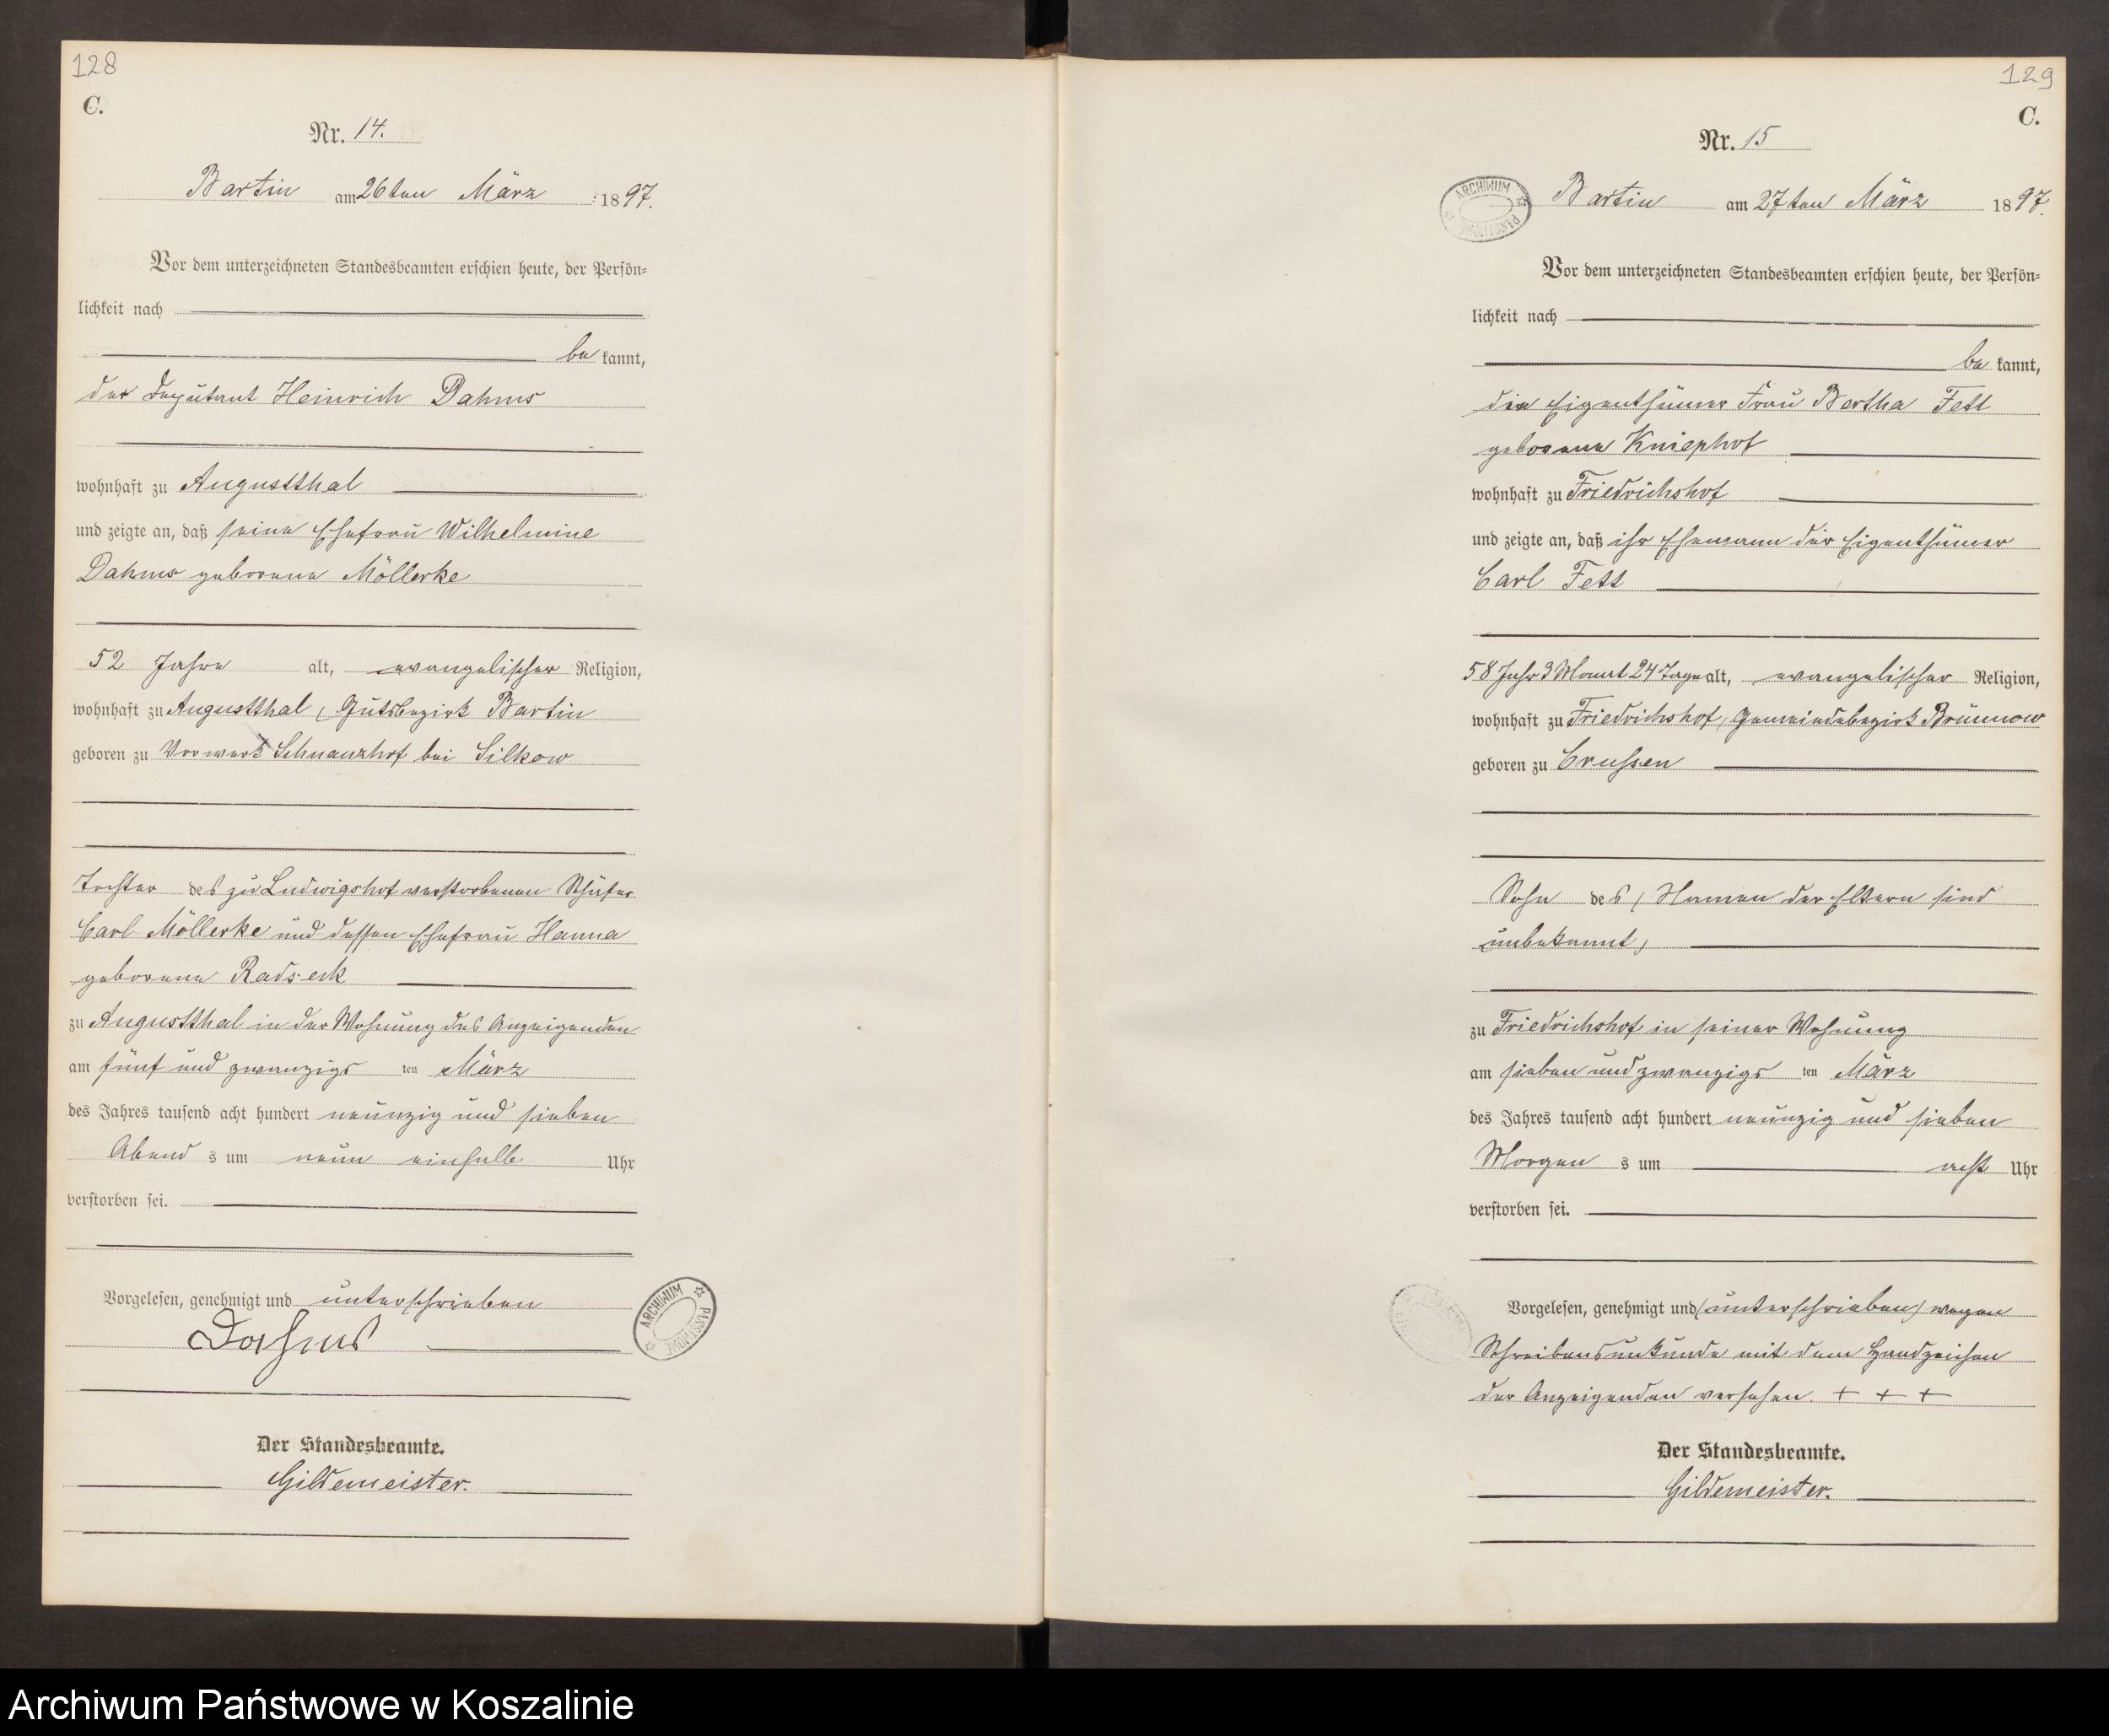 128
C.
Nr. 14.
Bartin am 26ten März 1897.
Vor dem unterzeichneten Standesbeamten erschien heute, der Persön-
lichkeit nach
be kannt,
der Deputant Heinrich Dahms
wohnhaft zu Augustthal
und zeigte an, daß seine Ehefrau Wilhelmine
Dahms geborene Möllerke
52 Jahre alt, evangelischer Religion,
wohnhaft zu Augustthal, Gutsbezirk Bartin
geboren zu Vorwerk Schwanzhof bei Silkow
Tochter des zu Ludwigshof verstorbenen Schäfer
Carl Möllerke und dessen Ehefrau Hanna
geborene
zu Augustthal in der Wohnung des Anzeigenden
am fünf und zwanzigs ten März
des Jahres tausend acht hundert neunzig und sieben
Abend s um neun einhalb Uhr
verstorben sei.
Vorgelesen, genehmigt und unterschrieben
Dahms
ARCHIWUM PAŃSTWOWE
Der Standesbeamte.
Gildemeister.
129
C.
Nr. 15
ARCHIWUM PAŃSTWOWE
Bartin am 27ten März 1897.
Vor dem unterzeichneten Standesbeamten erschien heute, der Persön-
lichkeit nach
be kannt,
die Eigenthümer Frau Bertha Fett
geborene Kniephof
wohnhaft zu Friedrichshof
und zeigte an, daß ihr Ehemann der Eigenthümer
Carl Fett
58 Jahr 3 Monat 24 Tage alt, evangelischer Religion,
wohnhaft zu Friedrichshof, Gemeindebezirk Brünnow
geboren zu Crussen
Sohn des (Namen der Eltern sind
unbekannt)
zu Friedrichshof in seiner Wohnung
am sieben und zwanzigs ten März
des Jahres tausend acht hundert neunzig und sieben
Morgen s um acht Uhr
verstorben sei.
Vorgelesen, genehmigt und (unterschrieben) wegen
Schreibensunkunde mit dem Handzeichen
der Anzeigenden versehen. + + +
Der Standesbeamte.
Gildemeister.
Archiwum Państwowe w Koszalinie